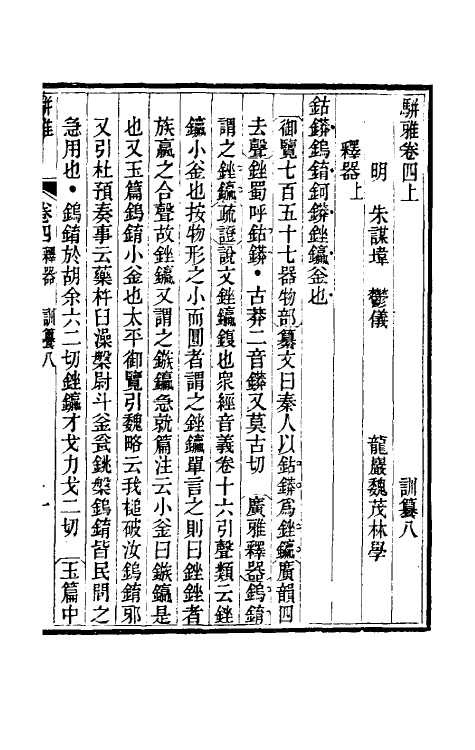 駢雅卷四上 訓纂八
明 朱謀㙔 鬱儀 龍巖魏茂林學
釋器上
鈷䥈鎢錥鈳䥈銼鑹釜也
御覽七百五十七器物部纂文曰秦人以鈷䥈爲銼鑹廣韻四
去聲銼蜀呼鈷䥈・古莽二音䥈又莫古切 廣雅釋器鎢錥
謂之銼鑹疏證說文銼鑹鍑也衆經音義卷十六引聲類云銼
鑹小釜也按物形之小而圓者謂之銼鑹單言之則曰銼者
族羸之合聲故銼鑹又謂之鏃鑹急就篇注云小釜曰鏃鑹是
也又玉篇鎢錥小釜也太平御覽引魏略云我槌破汝鎢錥邪
又引杜預奏事云藥杵臼澡槃尉斗釜瓮銚槃鎢錥皆民間之
急用也・鎢錥於胡余六二切銼鑹才戈力戈二切 玉篇中
駢雅 卷四釋器 訓纂八 一